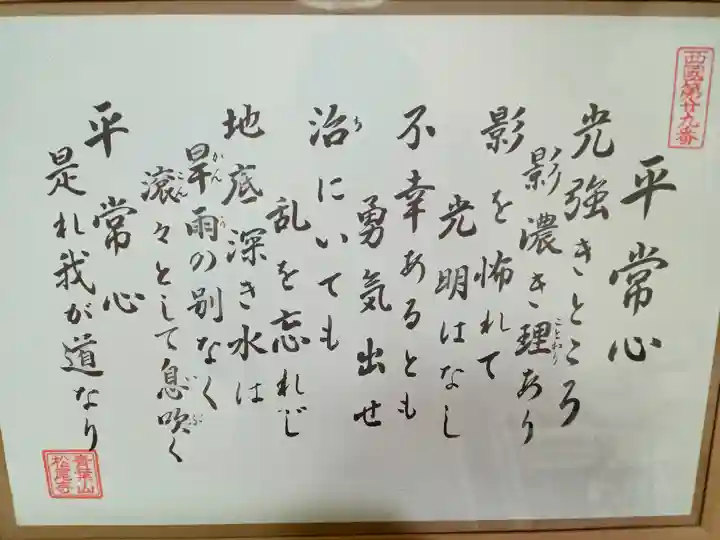 西國第廿九番
平常心
光強きところ
影濃き理あり
ことわり
影を怖れて
光明はなし
不幸あるとも
勇気出せ
治にいても
ち
乱を忘れじ
地底深き水は
旱雨の別なく
かんう
滾々として息吹く
こんいぶ
平常心
是れ我が道なり
青葉山
松尾寺